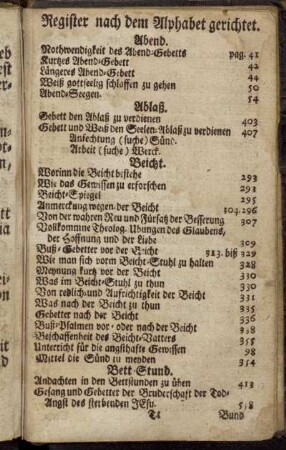 Register nach dem Alphabet gerichtet.
Abend.
Nothwendigkeit des Abend-Gebetts pag. 41
Kurtzes Abend-Gebett 42
Längeres Abend-Gebett 44
Weiß gottseelig schlaffen zu gehen 50
Abend-Seegen. 54
Ablaß.
Gebett den Ablaß zu verdienen 403
Gebett und Weiß den Seelen-Ablaß zu verdienen 407
Anfechtung (suche) Sünd.
Arbeit (suche) Werck.
Beicht.
Worinn die Beicht bestehe 293
Wie das Gewissen zu erforschen 293
Beicht-Spiegel 295
Anmerckung wegen der Beicht 304. 296
Von der wahren Reu und Fürsatz der Besserung 307
Vollkommne Theolog. Ubungen des Glaubens,
der Hoffnung und der Liebe 309
Buß-Gebetter vor der Beicht 313. biß 329
Wie man sich vorm Beicht-Stuhl zu halten 328
Meynung kurtz vor der Beicht 330
Was im Beicht-Stuhl zu thun 330
Von redlich- und Aufrichtigkeit der Beicht 331
Was nach der Beicht zu thun 335
Gebetter nach der Beicht 336
Buß-Psalmen vor- oder nach der Beicht 338
Beschaffenheit des Beicht-Vatters 355
Unterricht für die angsthafte Gewissen 98
Mittel die Sünd zu meyden 354
Bett-Stund.
Andachten in den Bettstunden zu üben 413
Gesang und Gebetter der Bruderschaft der Tod-
Angst des sterbenden JEsu. 518
Tt Bund